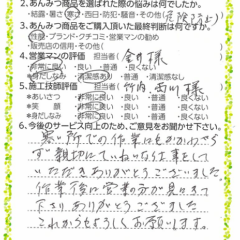 2.あんみつ商品を選ばれた際の悩みは何でしたか。
・結露・暑さ・寒さ・西日・防犯・騒音・その他(
3.あんみつ商品をご購入頂いた最終判断は何ですか。
・性能・ブランド・クチコミ・営業マンの勧め
・販売店の信用・その他(
4.営業マンの評価
・非常に良い ・良い ・普通 ・良くない
★身だしなみ ・清潔感あり ・普通 ・清潔感なし
5.施工技師評価 竹内・西川様
★あいさつ ・非常に良い ・良い ・普通 ・良くない
★笑顔 ・非常に良い ・良い ・普通 ・良くない
★身だしなみ ・非常に良い ・良い ・普通 ・良くない
6.今後のサービス向上のため、ご意見をお聞かせ下さい。
寒い所での作業にもかかわら
ず親切にていねいな仕事をして
いただきありがとうございました。
作業後に営業の方が見に来て
下さりありがとうございました
これからもよろしくお願いします。